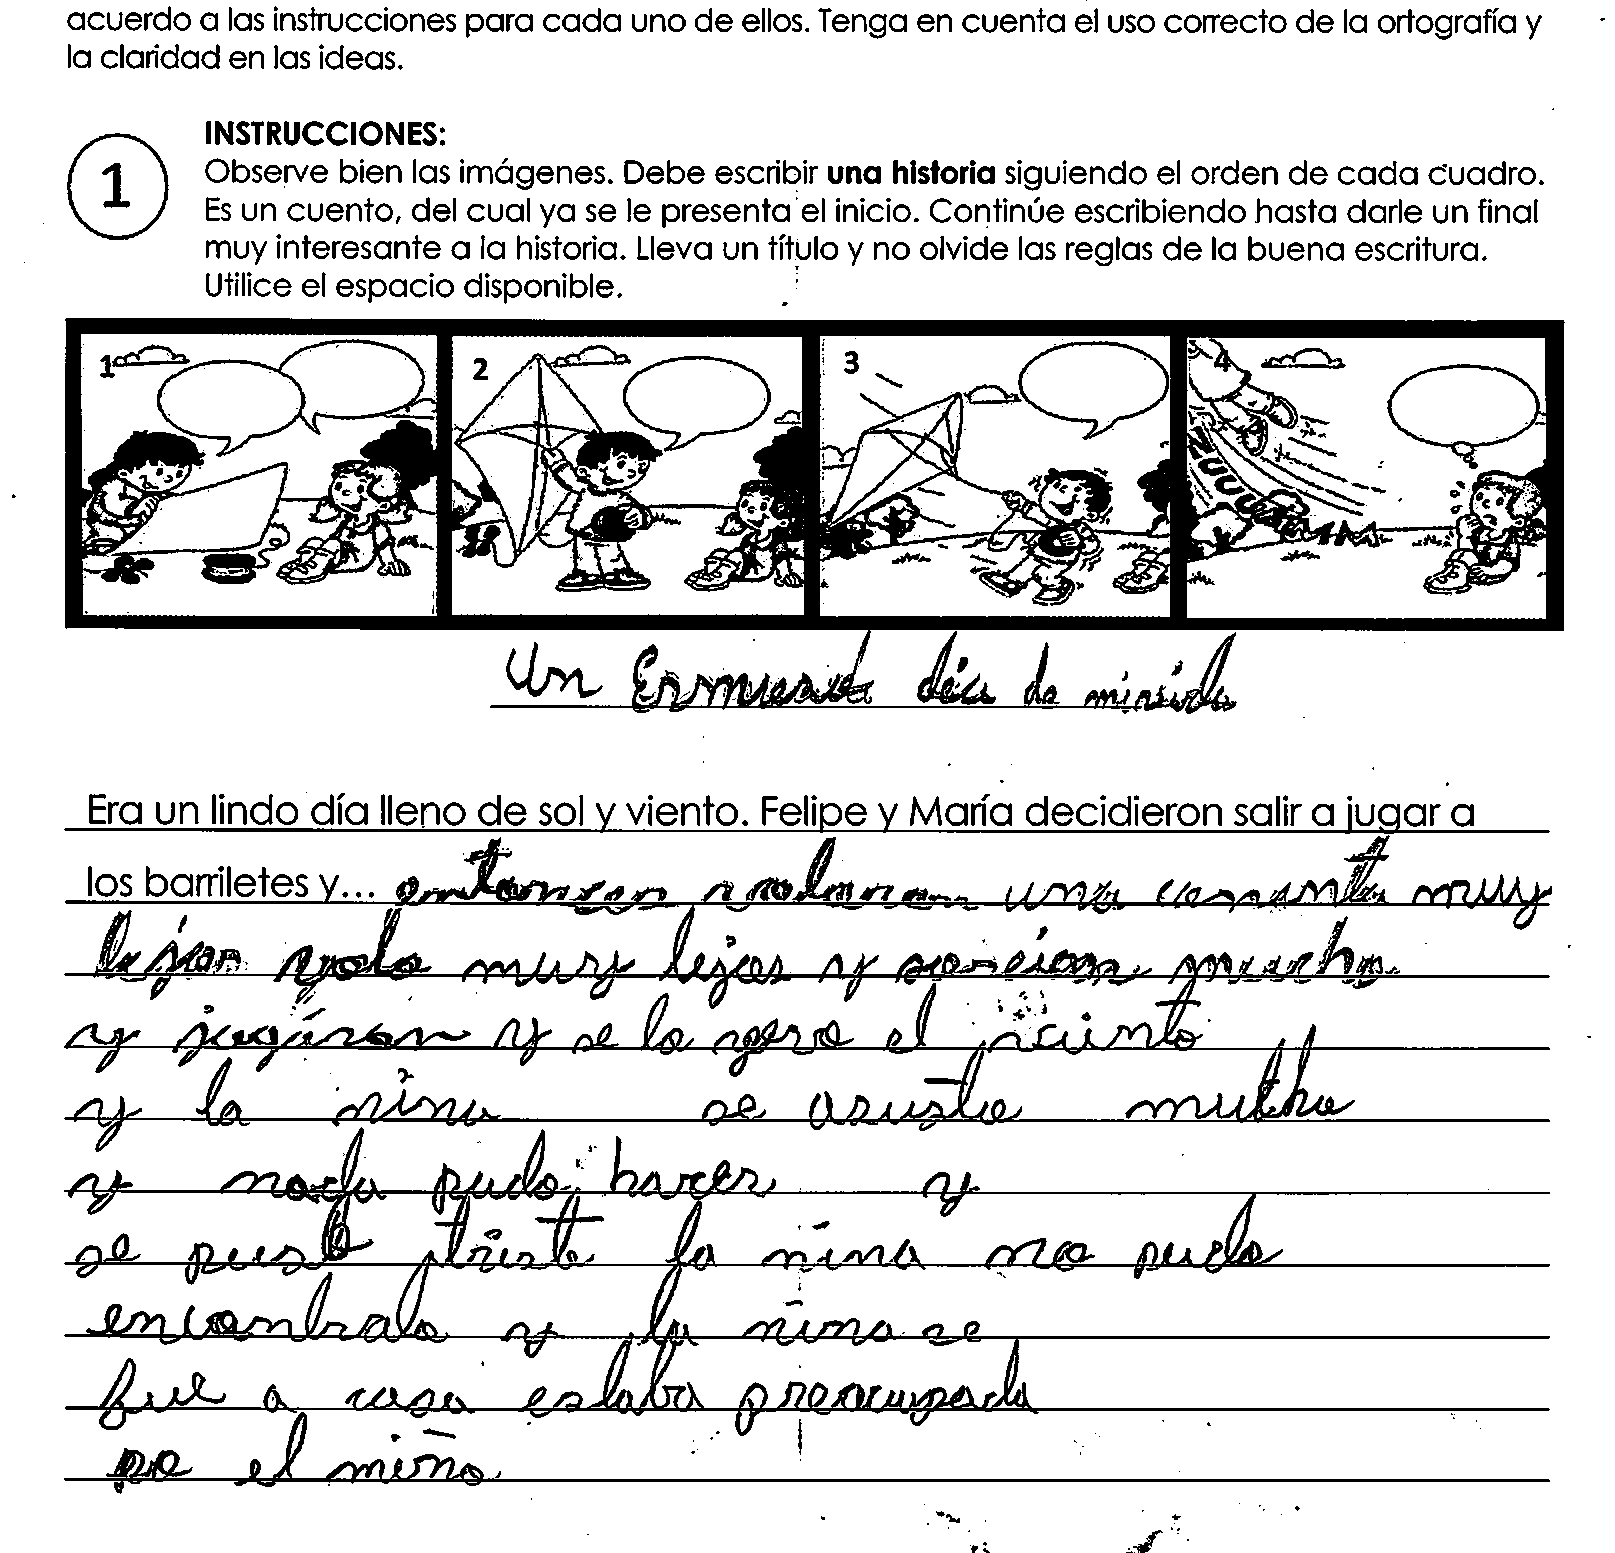 acuerdo a las instrucciones para cada uno de ellos. Tenga en cuenta el uso correcto de la ortografía y
la claridad en las ideas.
1
INSTRUCCIONES:
Observe bien las imágenes. Debe escribir una historia siguiendo el orden de cada cuadro.
Es un cuento, del cual ya se le presenta el inicio. Continúe escribiendo hasta darle un final
muy interesante a la historia. Lleva un título y no olvide las reglas de la buena escritura.
Utilice el espacio disponible.
1 2 3 4
ZUUUUMMM
Un día de
Era un lindo día lleno de sol y viento. Felipe y María decidieron salir a jugar a
los barriletes y... una muy
lejos volo muy lejos y mucho
y jugaron y se lo el
y la niña se asusto mucho
y nada pudo hacer y
se puso triste la niña no pudo
encontralo y la niña se
fue a casa estaba preocupada
po el niño